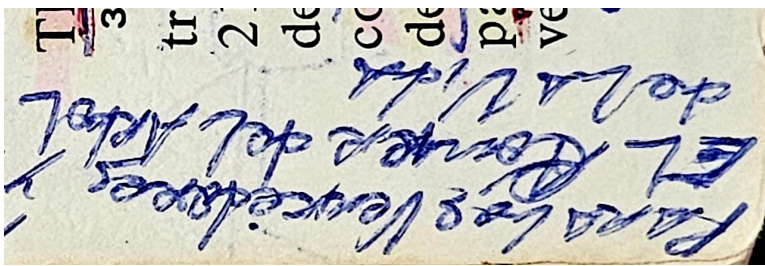 Para Los Vencedores y
EL Comer del Arbol
de La Vida
3
tr
2
de
co
de
pa
ve